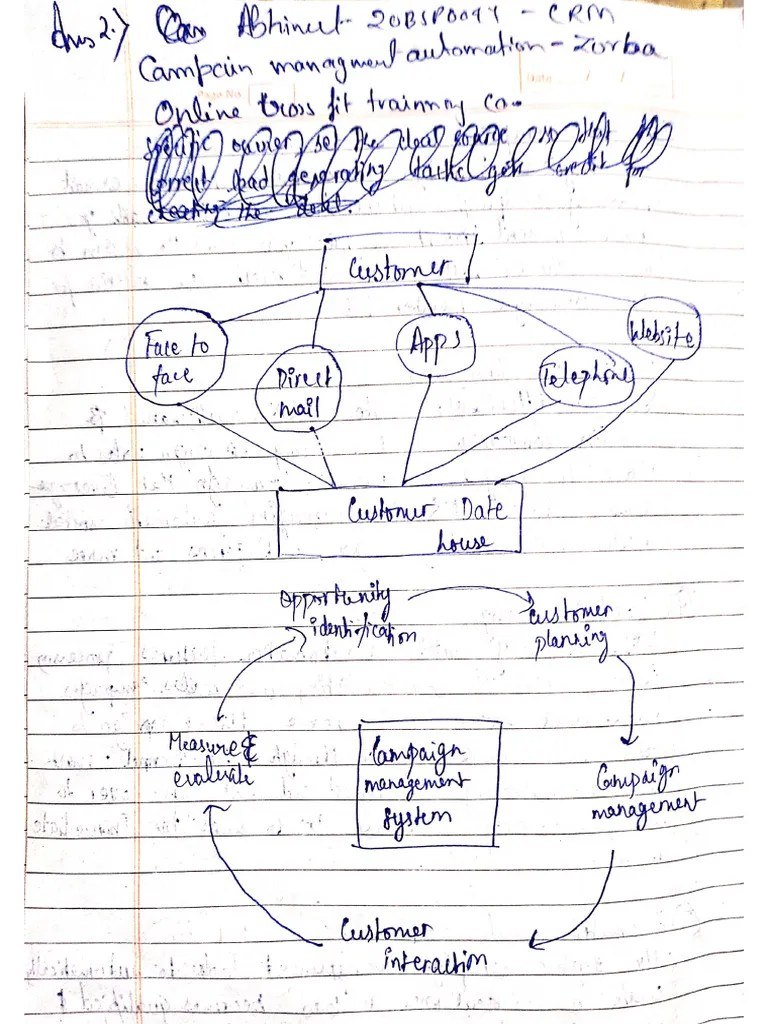 Ans 2.) Abhineet - 20BSP0094 - CRM
Campain managment automation - Zorba
Online cross fit trainning co.
specific owner the
lead generating tasks
creating the
Customer
Face to
face
Direct
mail
Apps
Telephone
Website
Customer Date
house
Opportunity
identification
Customer
planning
Measure &
evaluate
Campaign
management
system
Campaign
management
Customer
interaction